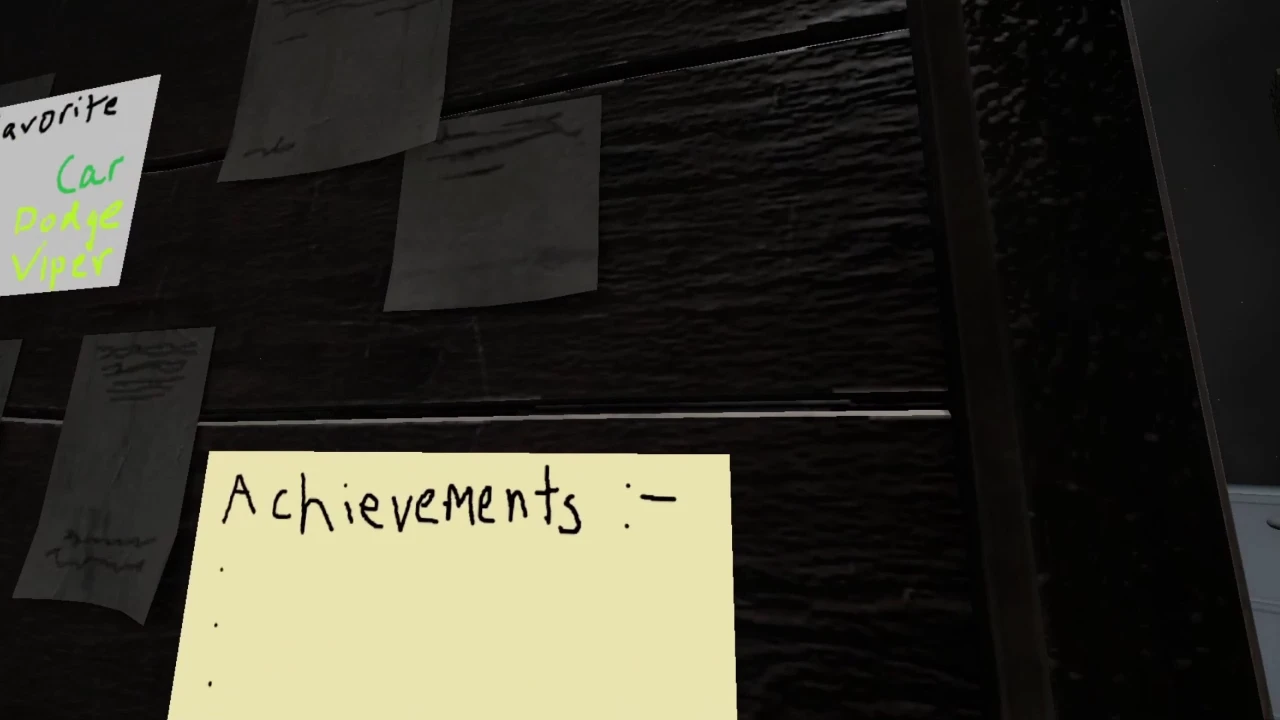 avorite
Car
Dodge
Viper
Achievements :-
.
.
.